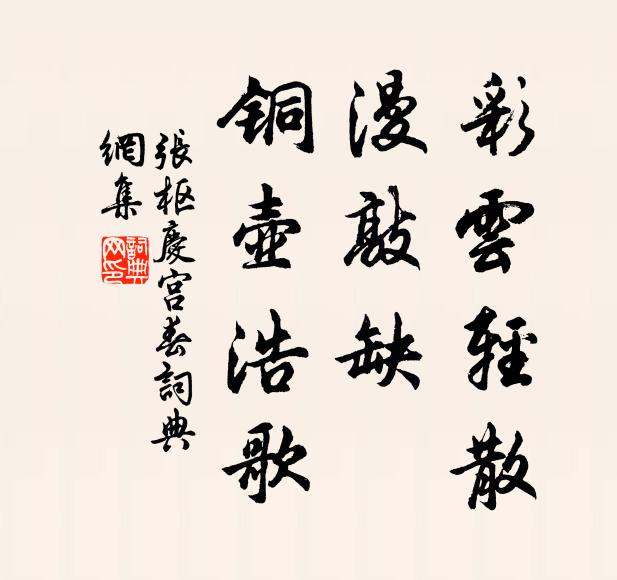 彩雲輕散
漫敲缺
铜壺浩歌
張枢慶宫春詞典
網集
詞典网印